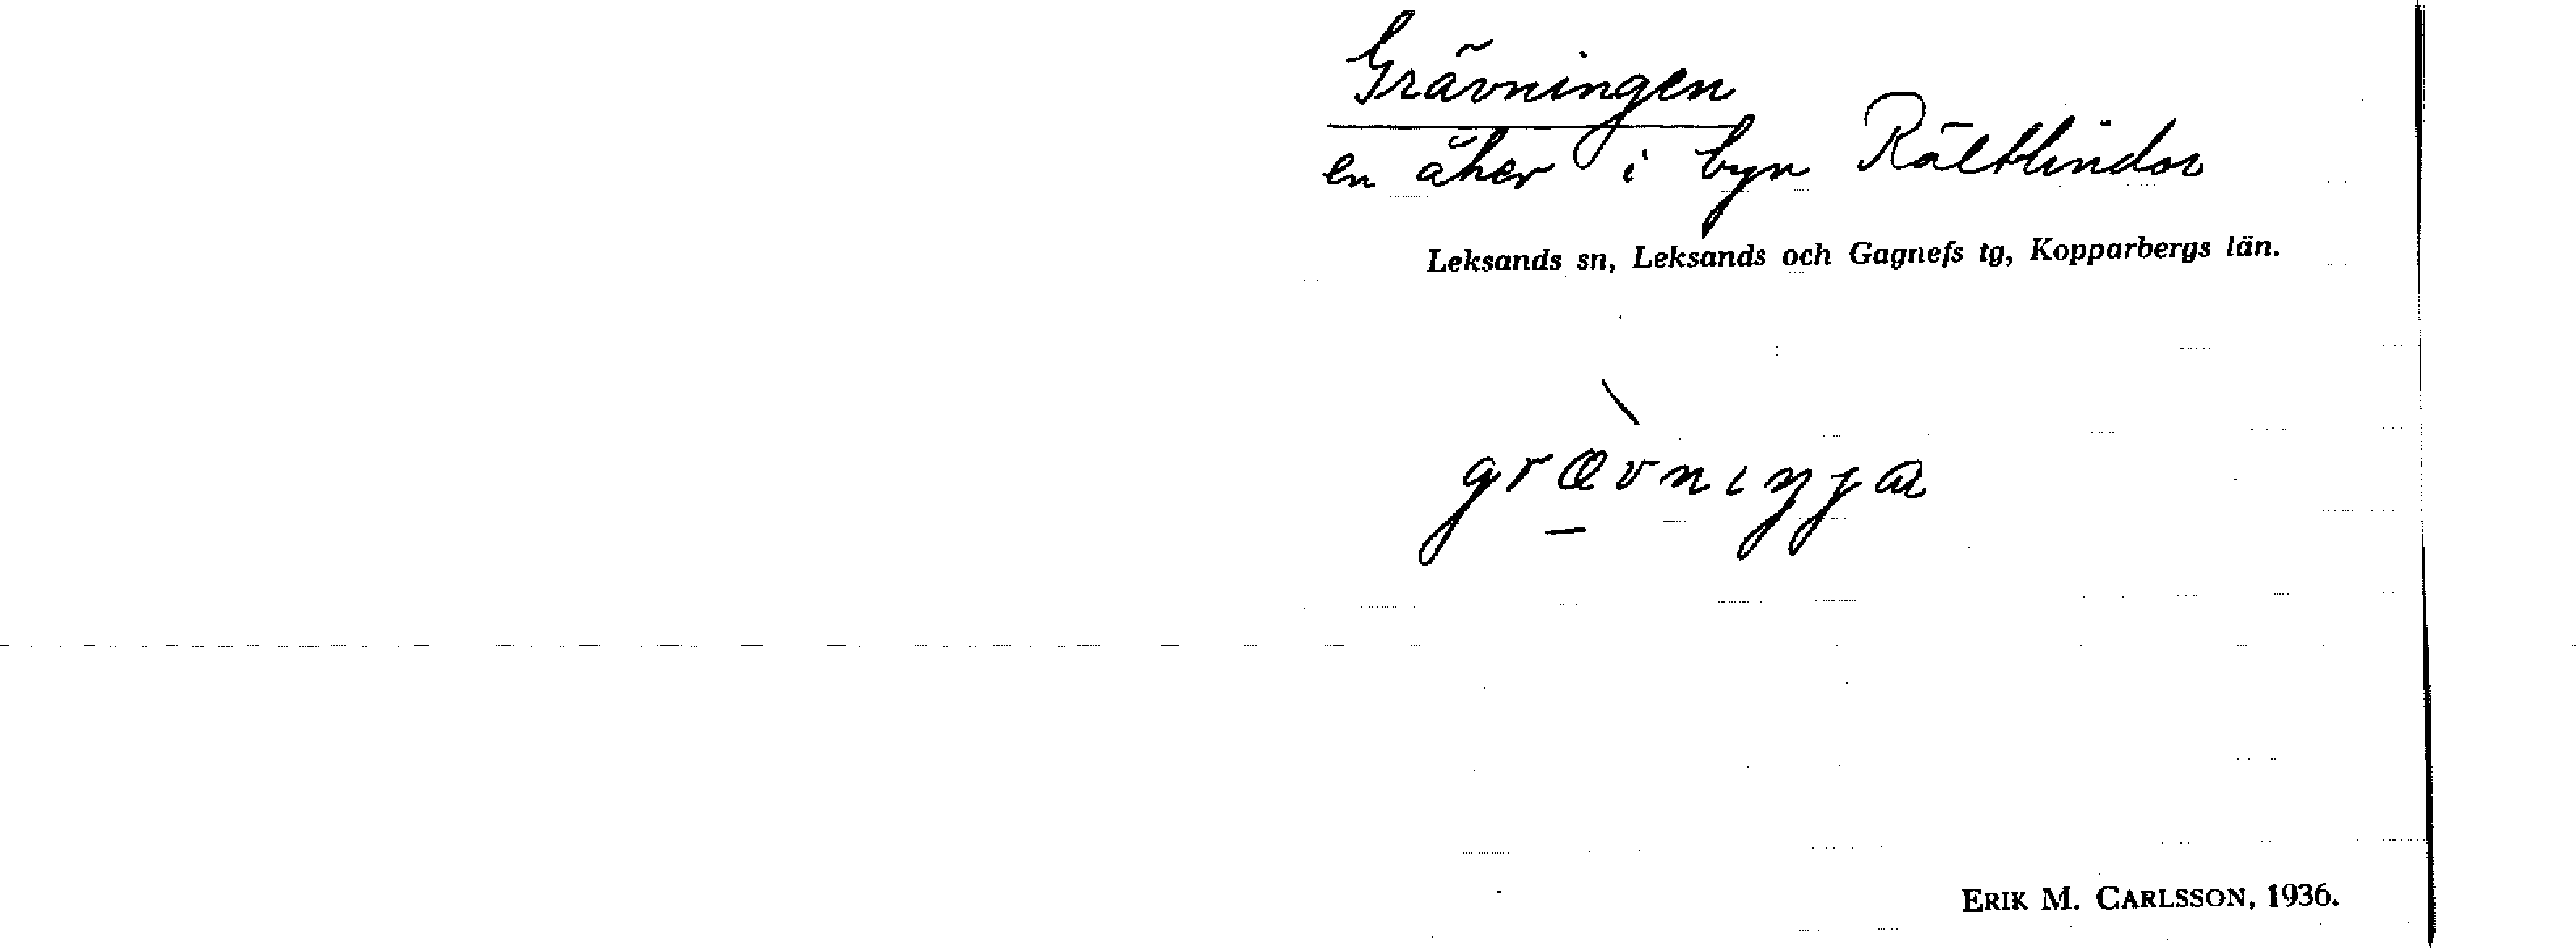 Grävningen
en åker i byn Rältlindor
Leksands sn, Leksands och Gagnefs tg, Kopparbergs län.
grævnıŋɟa
ERIK M. CARLSSON, 1936.